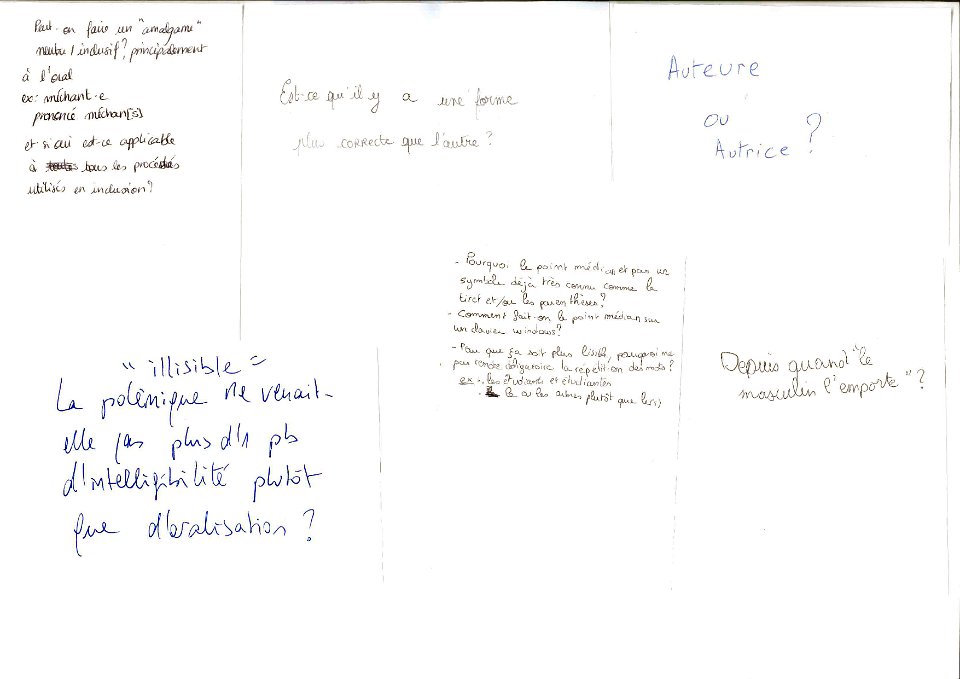 Peut-on faire un "amalgame"
neutre / inclusif ? principalement
à l'oral
ex: méchant·e
prononcé méchan[s]
et si oui est-ce applicable
à tous les procédés
utilisés en inclusion ?
Est-ce qu'il y a une forme
plus correcte que l'autre ?
Auteure
ou
Autrice ?
- Pourquoi le point médian et pas un
symbole déjà très connu comme le
tiret et/ou les parenthèses ?
- Comment fait-on le point médian sur
un clavier windows ?
- Pour que ça soit plus lisible, pourquoi ne
pas rendre obligatoire la répétition des mots ?
ex - les étudiants et étudiantes
- le ou les autres plutôt que le(s)
"illisible"
La polémique ne venait-
elle pas plus d'1 pb
d'intelligibilité plutôt
que d'oralisation ?
Depuis quand "le
masculin l'emporte" ?